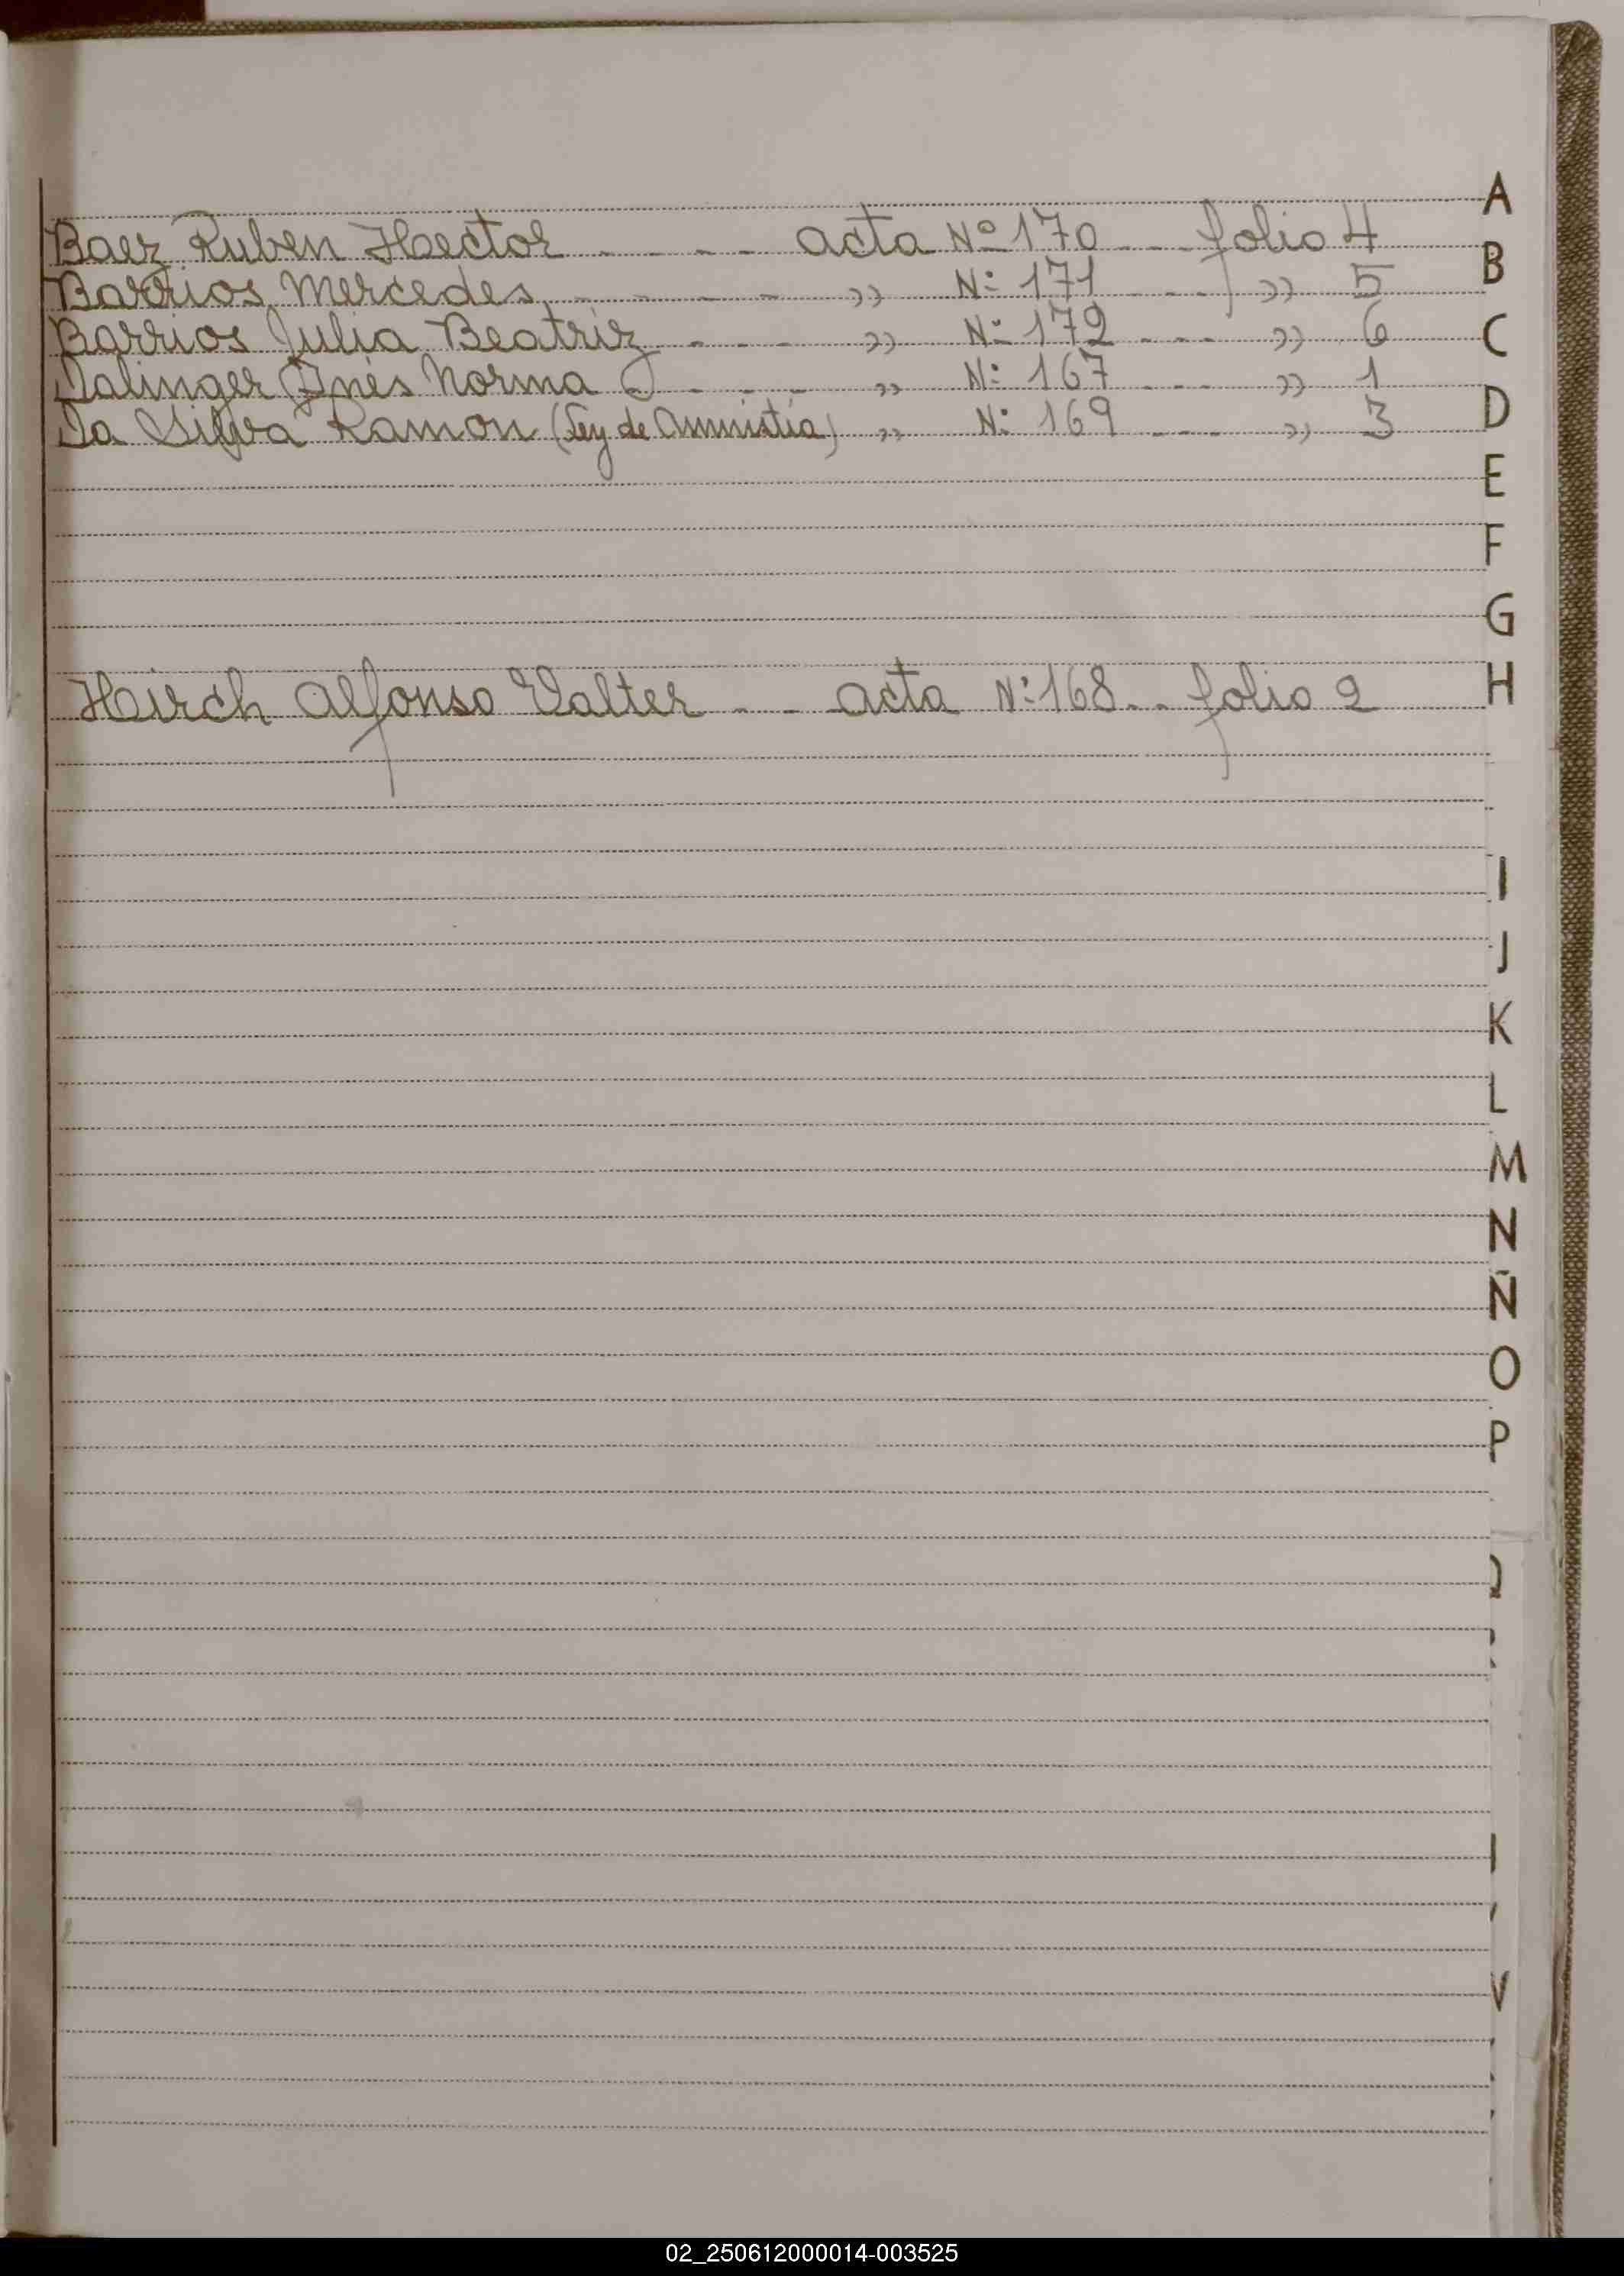 A
Baez Ruben Hector - - - - acta Nº 170 - - folio 4
B
Barrios Mercedes - - - - - ,, Nº 171 - - ,, 5
Barrios Julia Beatriz - - - ,, Nº 172 - - - ,, 6
C
Dalinger Inés Norma - - - - ,, Nº 167 - - - ,, 1
Da Silva Ramon (Ley de Amnistia) ,, Nº 169 - - - ,, 3
D
E
F
G
Hirch Alfonso Valter - - acta Nº 168 - - folio 2
H
I
J
K
L
M
N
Ñ
O
P
V
02_250612000014-003525